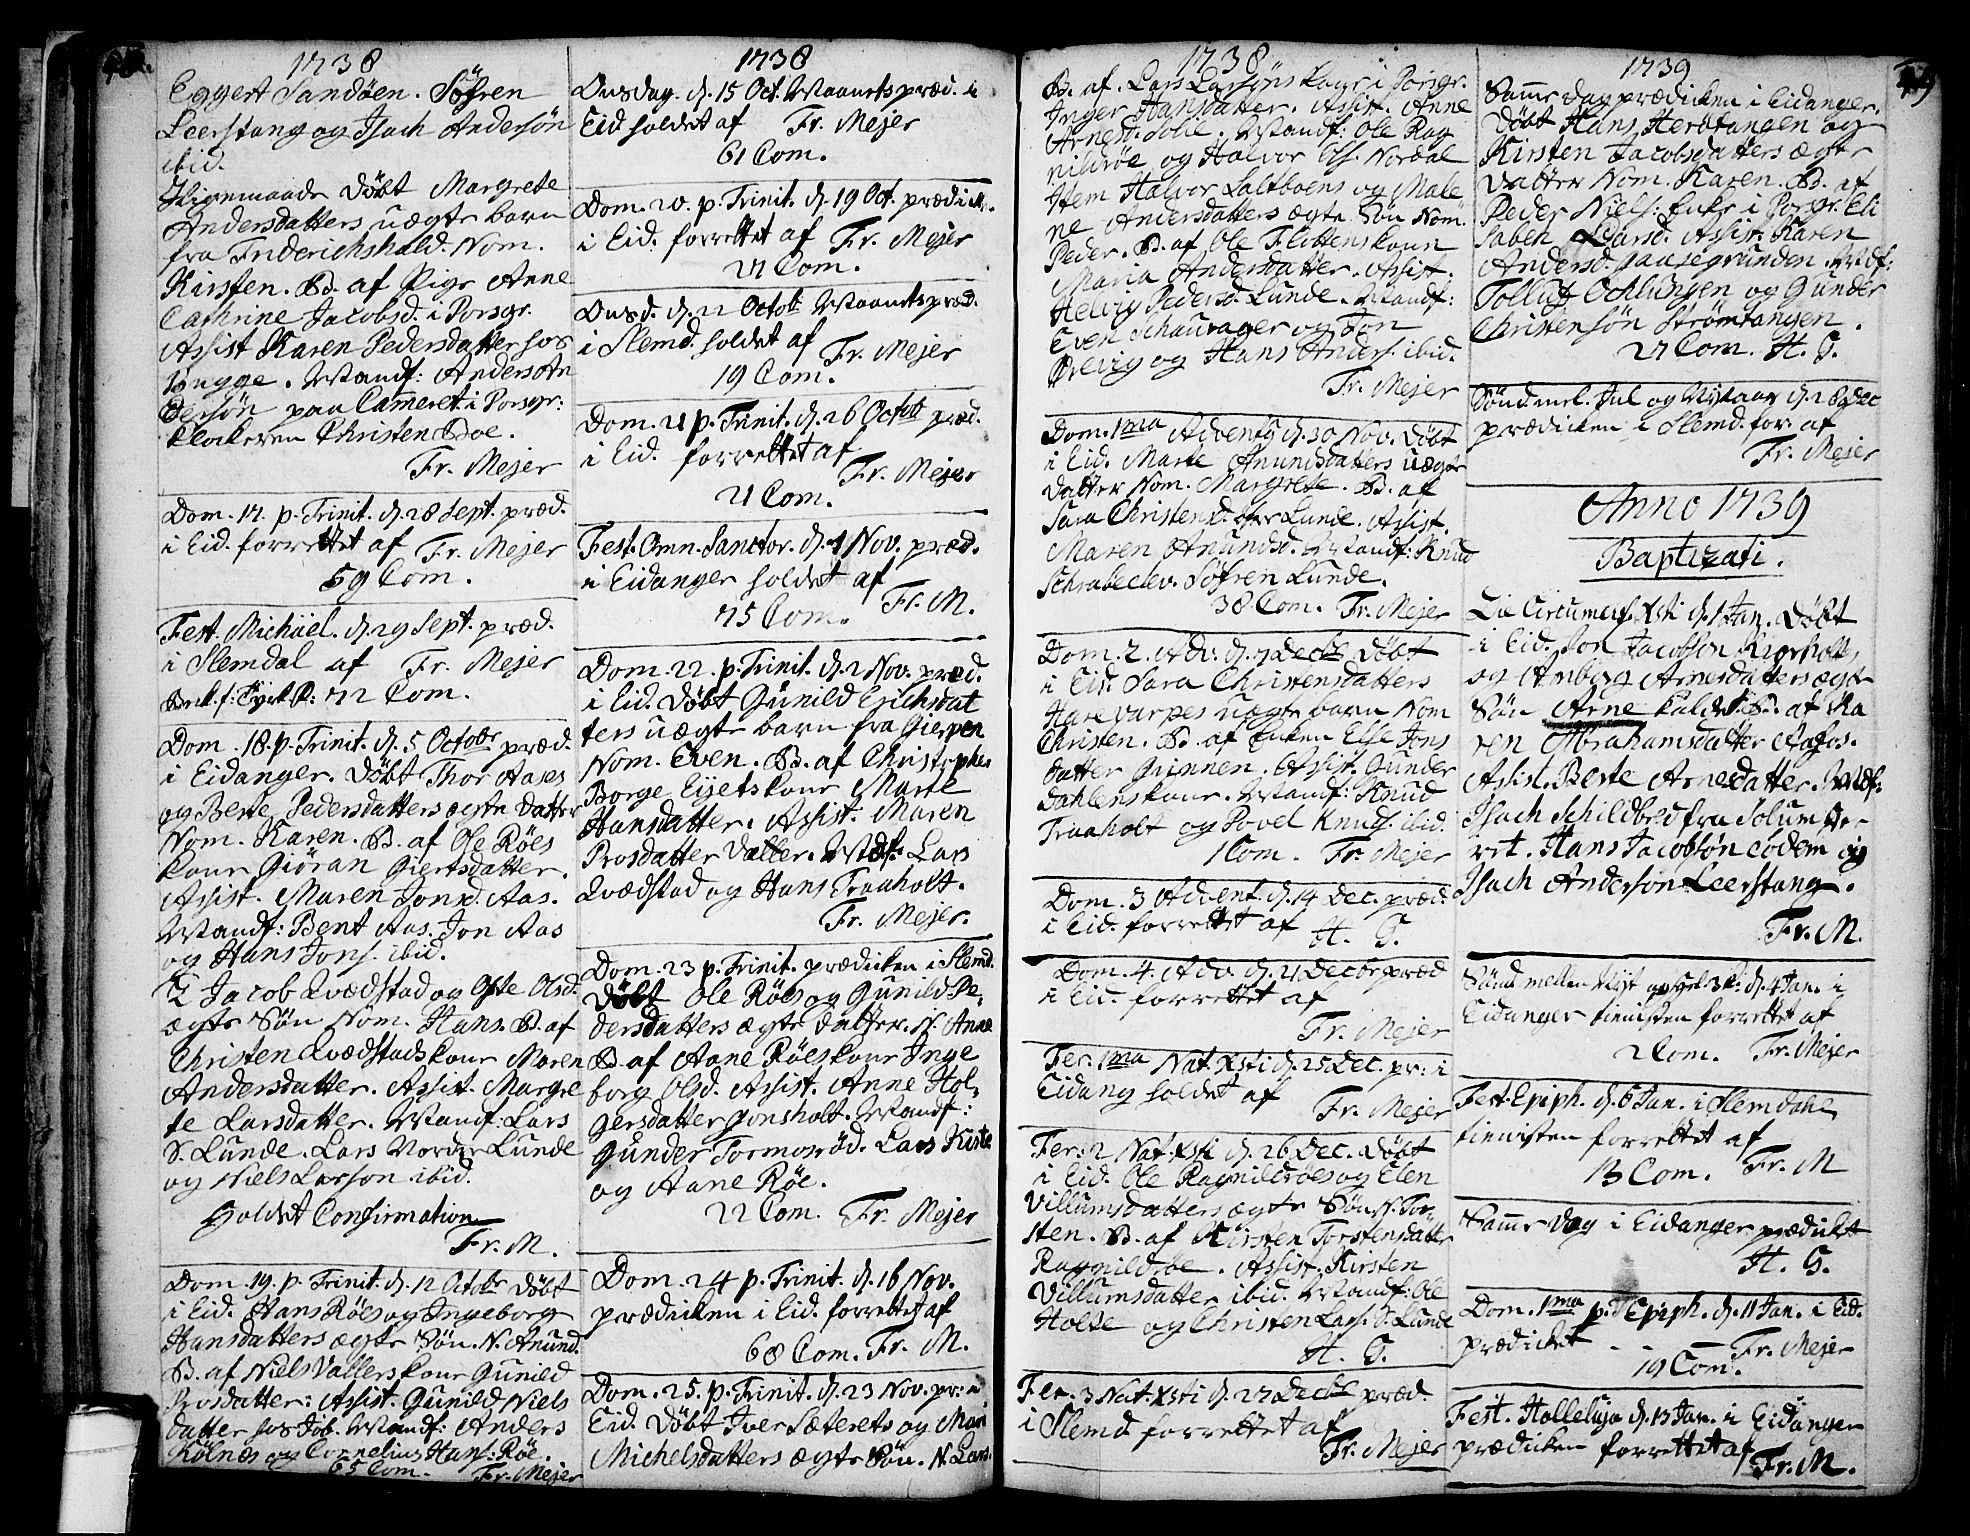 1738
Eggert Sandöen. Söfren
Leerstang og Jsach Andersön
ibid.
Ligemaade Döbt Margrete
Andersdatters uægte barn
fra Friderichshald. Nom.
Kirsten. B. af Pige Anne
Cathrine Jacobsd. i Porsgr.
Assist Karen Pedersdatter hos
Brygge. Vandf: Anders An
dersön paa Cameret i Porsgr:
klockeren Christen Boe.
Fr. Mejer
Dom. 17. p. Trinit. d. 28 Sept. præd.
i Eid. forrettet af Fr. Mejer
59 Com.
Fest. Michael. d. 29 Sept. præd.
i Slemdal af Fr. Mejer
72 Com.
Dom. 18. p. Trinit. d. 5 Octobr præd.
i Eidanger. Döbt Thor Aases
og Berte Pedersdatters ægte datter
Nom. Karen. B. af Ole Röes
kone Giöran Giertsdatter.
Assist. Maren Jonsd. Aas.
Vandf: Bent Aas. Jon Aas
og Hans Jons. ibid.
It Jacob Qvædstad og Aste Olsd.
ægte Sön Nom. Hans. B. af
Christen Qvædstads kone Maren
Andersdatter. Assist. Margre
te Larsdatter. Vandf: Lars
S. Lunde. Lars Nordre Lunde
og Niels Larson ibid.
Holdet Confirmation
Fr. M.
Dom. 19. p. Trinit. d. 12 Octobr Döbt
i Eid. Hans Röes og Ingeborg
Hansdatters ægte Sön. N. Anund.
B. af Niels Vallers kone Gunild
Prosdatter: Assist. Gunild Niels
datter hos Job. Vandf: Anders
Kölnes og Cornelius Hans: Röe.
65 Com. Fr. Mejer
1738
Onsdag d. 15 Oct. Maanets præd. i
Eid holdet af Fr. Mejer
61 Com.
Dom. 20. p. Trinit. d. 19 Oct. prædick.
i Eid. forrettet af Fr. Mejer
27 Com.
Onsd. d. 22 Octobr Maanets præd.
i Slemd. holdet af
Fr. Mejer
19 Com.
Dom. 21 p. Trinit. d. 26 Octobr præd.
i Eid. forrettet af
Fr. Mejer
21 Com.
Fest. Omn. Sanctor. d. 1 Nov. præd.
i Eidanger holdet af
75 Com. Fr. M.
Dom. 22. p. Trinit. d. 2 Nov. præd.
i Eid. Döbt Gunild Erichsdat
ters uægte barn fra Gierpen
Nom. Even. B. af Christopher
Borge Eijets kone Marte
Hansdatter. Assist. Maren
Prosdatter Valler. Vdf: Lars
Qvædstad og Hans Traaholt.
Fr. Mejer.
Dom. 23 p. Trinit. prædicken i Slemd.
Döbt Ole Röes og Gunild Pe,
dersdatters ægte datter. N. Anne
B. af Aane Röes kone Inge
borg Olsd. Assist. Anne Hol,
gersdatter Jonsholt. Vandf:
Gunder Tormosröd. Lars Kiste
og Aane Röe.
22 Com. Fr. Mejer
Dom. 24 p. Trinit. d. 16 Nov.
prædicken i Eid. forrettet af
68 Com. Fr. M.
Dom. 25. p. Trinit. d. 23 Nov. pr: i
Eid. Döbt Iver Sæterets og Mari
Michelsdatters ægte Sön. N. Lars.
1738
B. af Lars Larsöns kone i Porsgr.
Inger Hansdatter. Assist. Anne
Arnesd. Solie. Vandf: Ole Rag
nildröe og Halvor Ols. Nordal
Item Halvor Saltboens og Male
ne Andersdatters ægte Sön Nom.
Peder. B. af Ole Flottens kone
Maria Andersdatter. Assist.
Helvig Pedersd. Lunde. Vandf:
Even Schavrager og Jon
Örevig og Hans Anders. ibid.
Fr. Mejer
Dom. 1ma Adventq d. 30 Nov. Döbt
i Eid. Marte Anundsdatters uægte
datter Nom. Margrete. B. af
Sara Christensd. Lunde. Assist.
Maren Anundsd. Vandf: Knud
Schrabeclev. Söfren Lunde.
38 Com. Fr. Mejer
Dom. 2. Adv. d. 7 Decbr Döbt
i Eid. Sara Christensdatters
Harevarpes uægte barn Nom
Christen. B. af Enken Else Jons
datter Grinnen. Assist. Gunder
Dahlens kone. Vandf: Knud
Traaholt og Povel Knuds. ibid.
1 Com. Fr. Mejer
Dom. 3 Advent. d. 14 Dec. præd.
i Eid. forrettet af H. G.
Dom. 4. Adv. d. 21 Decbr præd
i Eid. forrettet af
Fr. Mejer
Fer. 1ma Nat. Xsti d. 25 Dec. pr: i
Eidang holdet af
Fr. Mejer
Fer: 2 Nat. Xsti d. 26 Dec. Döbt
i Eid. Ole Ragnildröes og Elen
Villumsdatters ægte Sön N. Tor,
sten. B. af Kirsten Torstensdatter
Ragnildröe. Assist. Kirsten
Villumsdatter ibid. Vandf: Ole
Holte og Christen Lars. S. Lunde
H. G.
Fer. 3 Nat. Xsti d. 27 Decbr præd.
i Slemd forrettet af
Fr. Mejer
1739
Samme dag prædicken i Eidanger.
Döbt Hans Herötangen og
Kirsten Jacobsdatters ægte
datter Nom. Karen. B. af
Peder Niels: Enke i Porgr. Eli
sabeh Larsd. Assist. Karen
Andersd. paa segrunden. Vdf:
Tolluf Ochlungen og Gunder
Christensön Strömtangen.
27 Com. H. G.
Sönd. mel. Jul og Nytaar d. 28 Dec
prædicken i Slemd. for: af
Fr. Mejer
Anno 1739
Baptizati.
Die Circumcis. Xsti d. 1 Jan. Döbt
i Eid. Jon Jacobson Kiørholts
og Anbiør Arnesdatters ægte
Sön Arne kaldet. B. af Ka
ren Abrahamsdatter Aafos.
Assist. Berte Arnesdatter. Vdf:
Jsach Schilbred fra Solum Her
ret. Hans Jacobsön eodem og
Jsach Anderson Leerstang.
Fr. M.
Sönd mellem Nyt og Hel. 3 K: d. 4 Jan. i
Eidanger tienisten forrettet af
2 Com. Fr. Mejer
Fest. Epiph. d. 6 Jan. i Slemdahl
tienisten forrettet af
13 Com. Fr. M
Samme dag i Eidanger prædiket
H. G.
Dom. 1ma p. Epiph. d. 11 Jan. i Eid.
prædicket - - Fr. Mejer
19 Com.
Fest. Halleluja d. 13 Jan. i Eidanger
prædicken forrettet af
Fr. M.